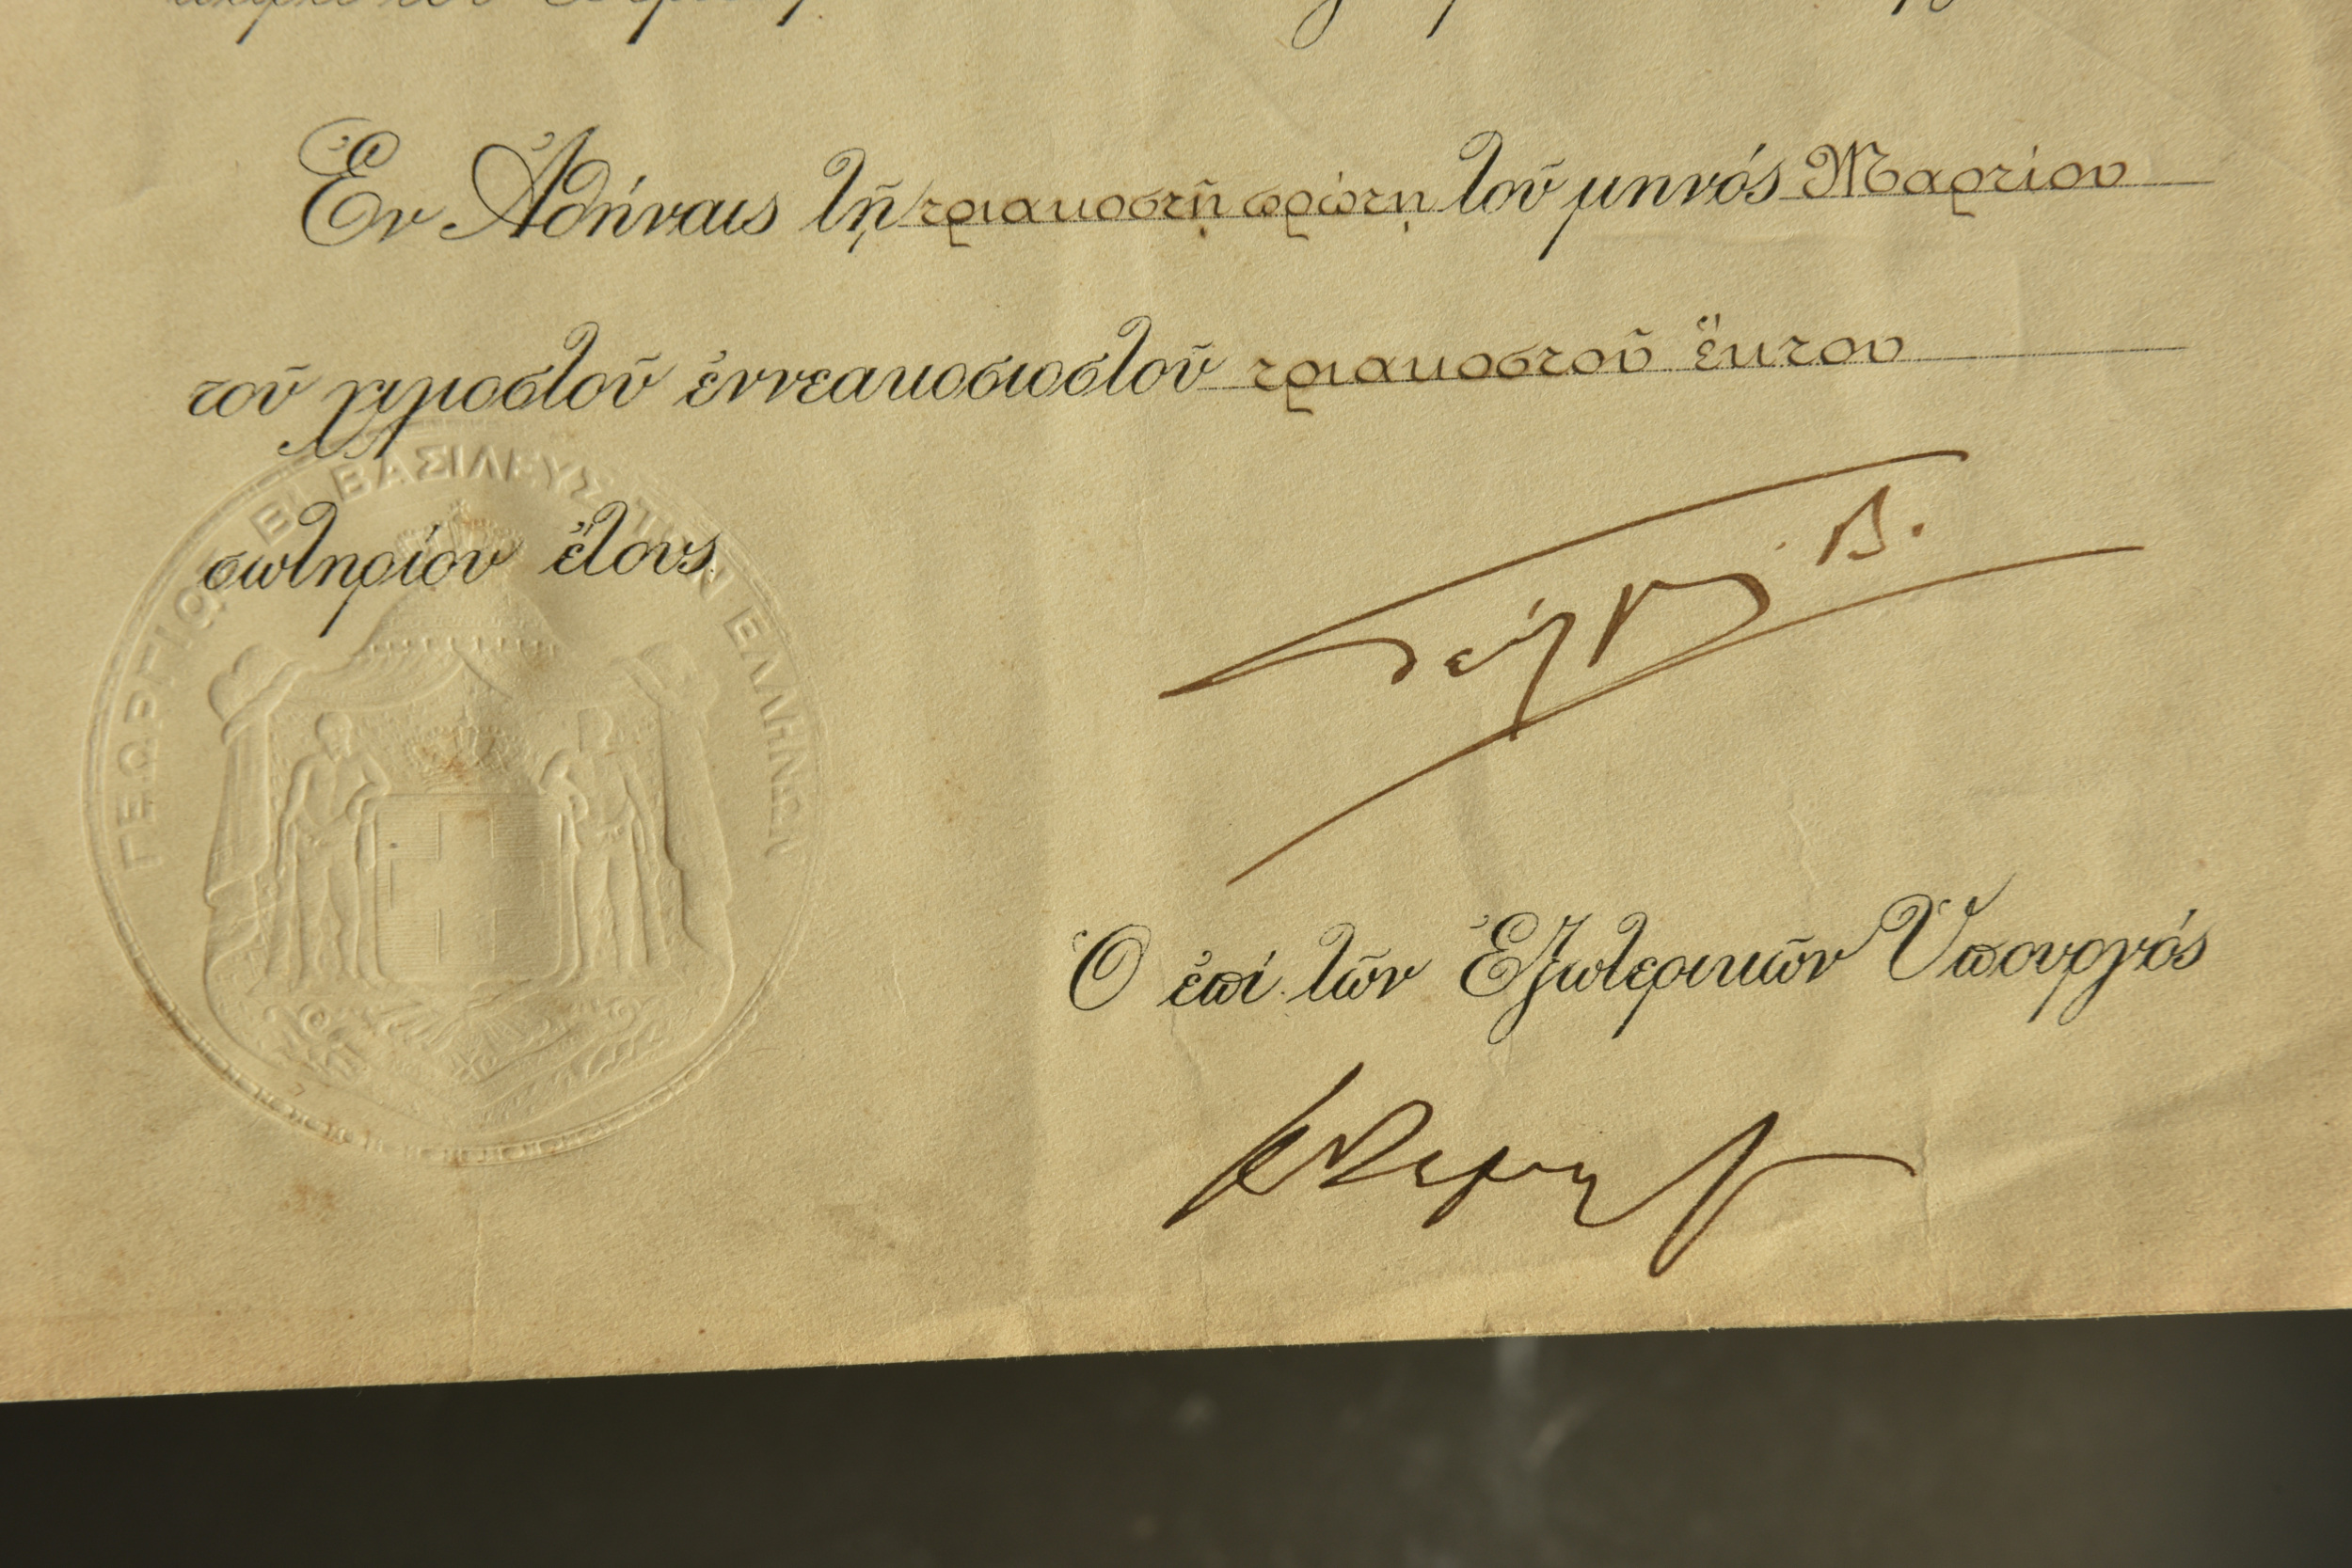 Ἐν Ἀθήναις τῇ τριακοστῇ πρώτῃ τοῦ μηνός Μαρτίου
τοῦ χιλιοστοῦ ἐννεακοσιοστοῦ τριακοστοῦ ἕκτου
σωτηρίου ἔτους.
ΓΕΩΡΓΙΟΣ Β! ΒΑΣΙΛΕΥΣ ΤΩΝ ΕΛΛΗΝΩΝ
Γεώργιος Β.
Ὁ ἐπί τῶν Ἐξωτερικῶν Ὑπουργός